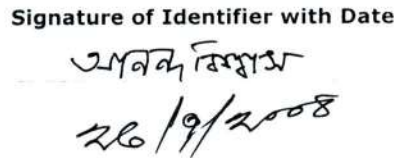 Signature of Identifier with Date
আনন্দ বিশ্বাস
২৬/৭/২০০৪